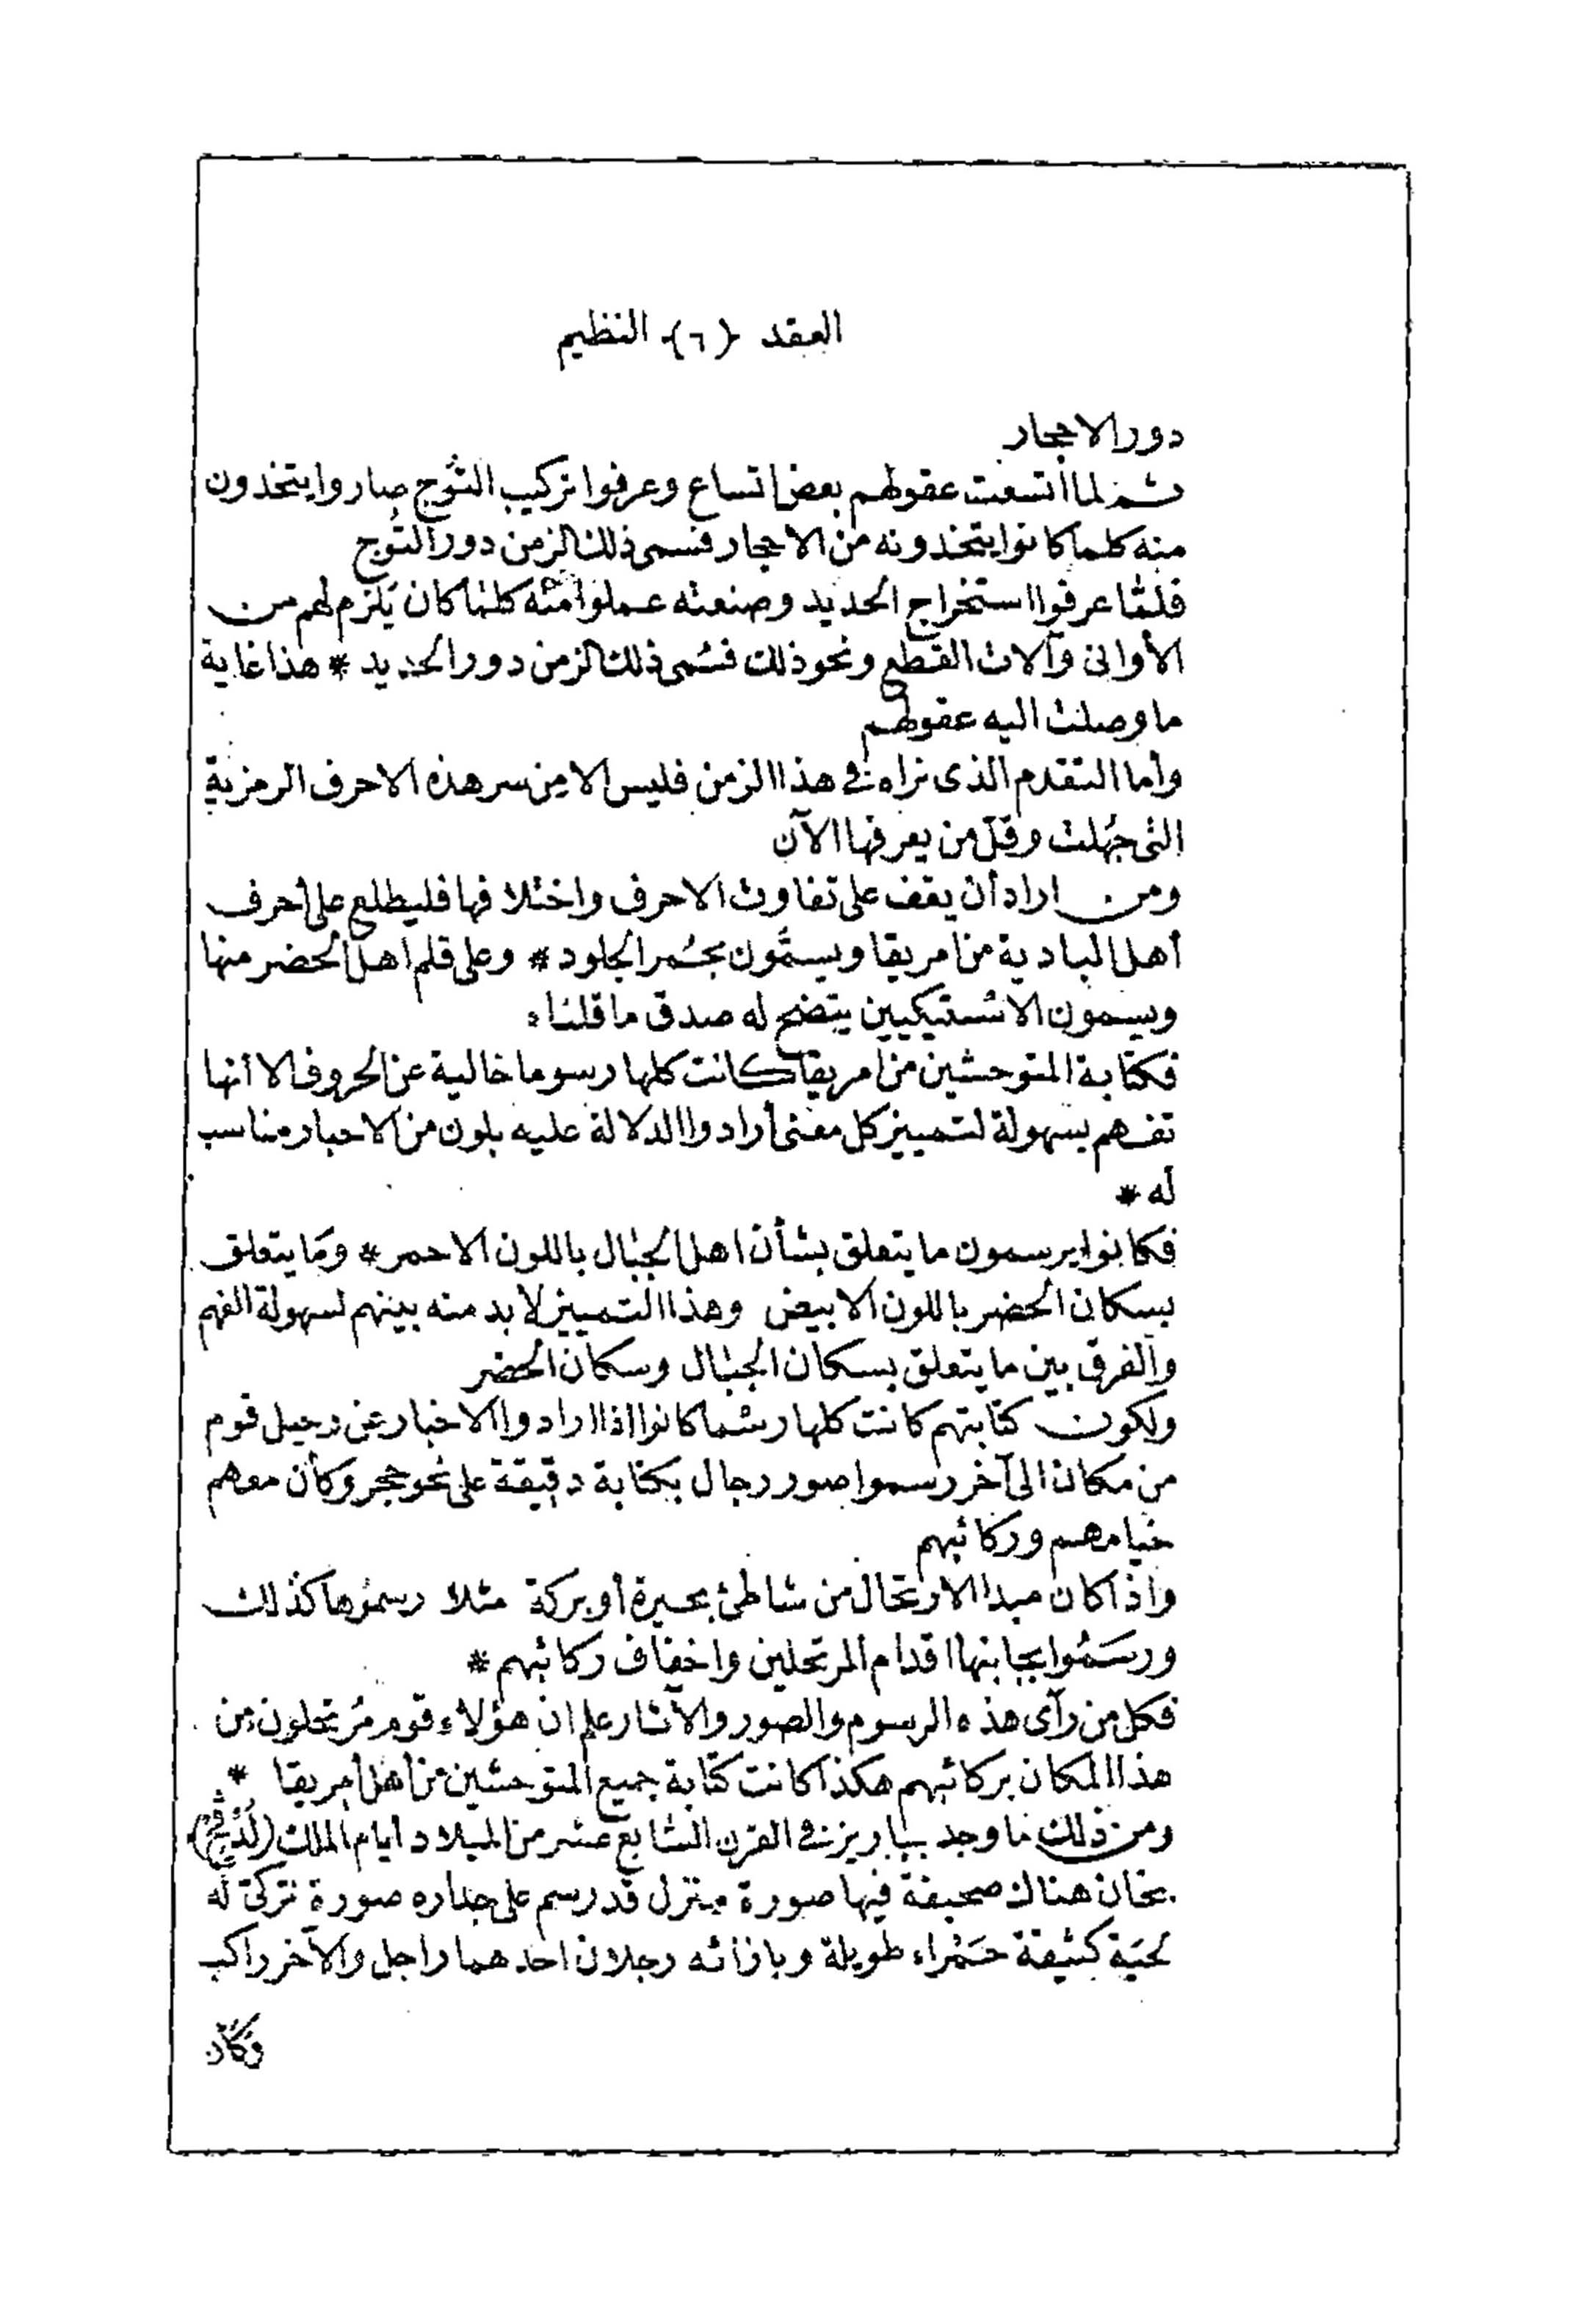 العقد ﴿٦﴾ النظيم
دور الاحجار
ثم لما أتسعت عقولهم بعض اتساع وعرفوا تركيب التُوج صاروا يتخذون
منه كلما كانوا يتخذونه من الاحجار فسمى ذلك الزمن دور التُوج
فلمّا عرفوا استخراج الحديد وصنعته عملوا منه كلما كان يَلزم لهم من
الأوانى وآلات القطع ونحو ذلك فسُمى ذلك الزمن دور الحديد * هذا غاية
ما وصلت اليه عقولهم
وأما التقدم الذى نراه فى هذا الزمن فليس الا من سر هذه الاحرف الرمزية
التى جُهلت وقلّ من يعرفها الآن
ومن اراد أن يقف على تفاوت الاحرف واختلافها فليطلع على أحرف
أهل البادية من امريقا ويسمَّون بحُمر الجلود * وعلى قلم اهل الحضر منها
ويسمون الاستيكيين يتضح له صدق ما قلناه
فكتابة المتوحشين من امريقا كانت كلها رسوما خالية عن الحروف الا أنها
تفهم بسهولة لتمييز كل معنى أرادوا الدلالة عليه بلون من الاحبار مناسب
له *
فكانوا يرسمون ما يتعلق بشأن اهل الجبال باللون الاحمر * وما يتعلق
بسكان الحضر باللون الابيض وهذا التمييز لا بد منه بينهم لسهولة الفهم
والفرق بين ما يتعلق بسكان الجبال وسكان الحضر
ولكون كتابتهم كانت كلها رسما كانوا اذا ارادوا الاخبار عن رحيل قوم
من مكان الى آخر رسموا صور رجال بكتابة دقيقة على نحو حجر وكأن معهم
خيامهم وركائبهم
واذا كان مبدا الارتحال من شاطئ بحيرة أو بركة مثلا رسموها كذلك
ورسَمُوا بجانبها اقدام المرتحلين واخفاف ركائبهم *
فكل من رآى هذه الرسوم والصور والآثار علم ان هؤلاء قوم مُرتحلون من
هذا المكان بركائبهم هكذا كانت كتابة جميع المتوحشين من أهل أمريقا *
ومن ذلك ما وجد بباريز فى القرن السابع عشر من الميلاد ايام الملك
بخان هناك صحيفة فيها صورة منزل قد رسم على جداره صورة تركىّ له
لحيَة كثيفة حَمْراء طويلة وبازائه رجلان احدهما راجل والآخر راكب
وكان